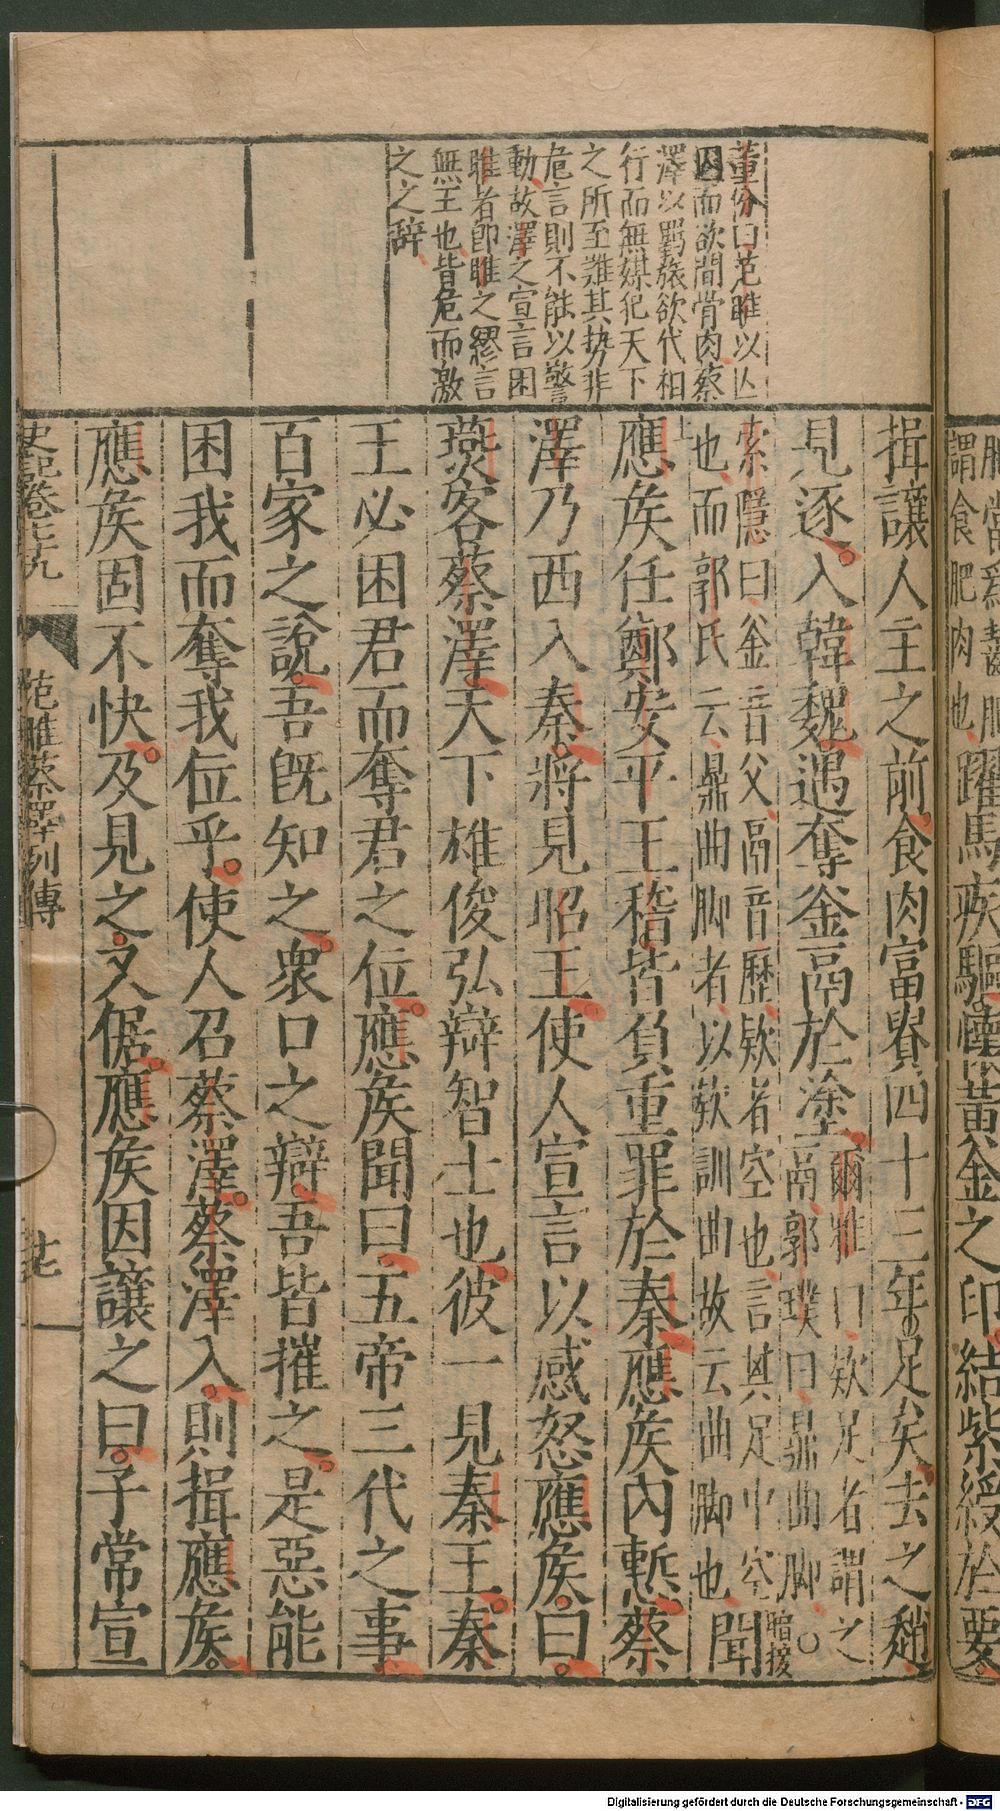 腸當爲齧腸
謂食肥肉也躍馬疾驅懷黃金之印結紫綬於要
董份曰范雎以凶
囚而欲間骨肉蔡
澤以羈旅欲代相
行而無媒犯天下
之所至難其勢非
危言則不能以警
動故澤之宣言困
雎者卽雎之繆言
無王也皆危而激
之之辭
揖讓人主之前食肉富貴四十三年足矣去之趙
見逐入韓魏遇奪釡鬲於塗爾雅曰欵足者謂之
鬲郭璞曰鼎曲脚○
索隱曰釡音父鬲音歷欵者空也言其足中空
也而郭氏云鼎曲脚者以欵訓曲故云曲脚也聞
應矦任鄭安平王稽皆負重罪於秦應矦內慙蔡
澤乃西入秦將見昭王使人宣言以感怒應矦曰
燕客蔡澤天下雄俊弘辯智士也彼一見秦王秦
王必困君而奪君之位應矦聞曰五帝三代之事
百家之說吾旣知之衆口之辯吾皆摧之是惡能
困我而奪我位乎使人召蔡澤蔡澤入則揖應矦
應矦固不快及見之又倨應矦因讓之曰子常宣
史記卷七十九
范雎蔡澤列傳
廿七
Digitalisierung gefördert durch die Deutsche Forschungsgemeinschaft - DFG